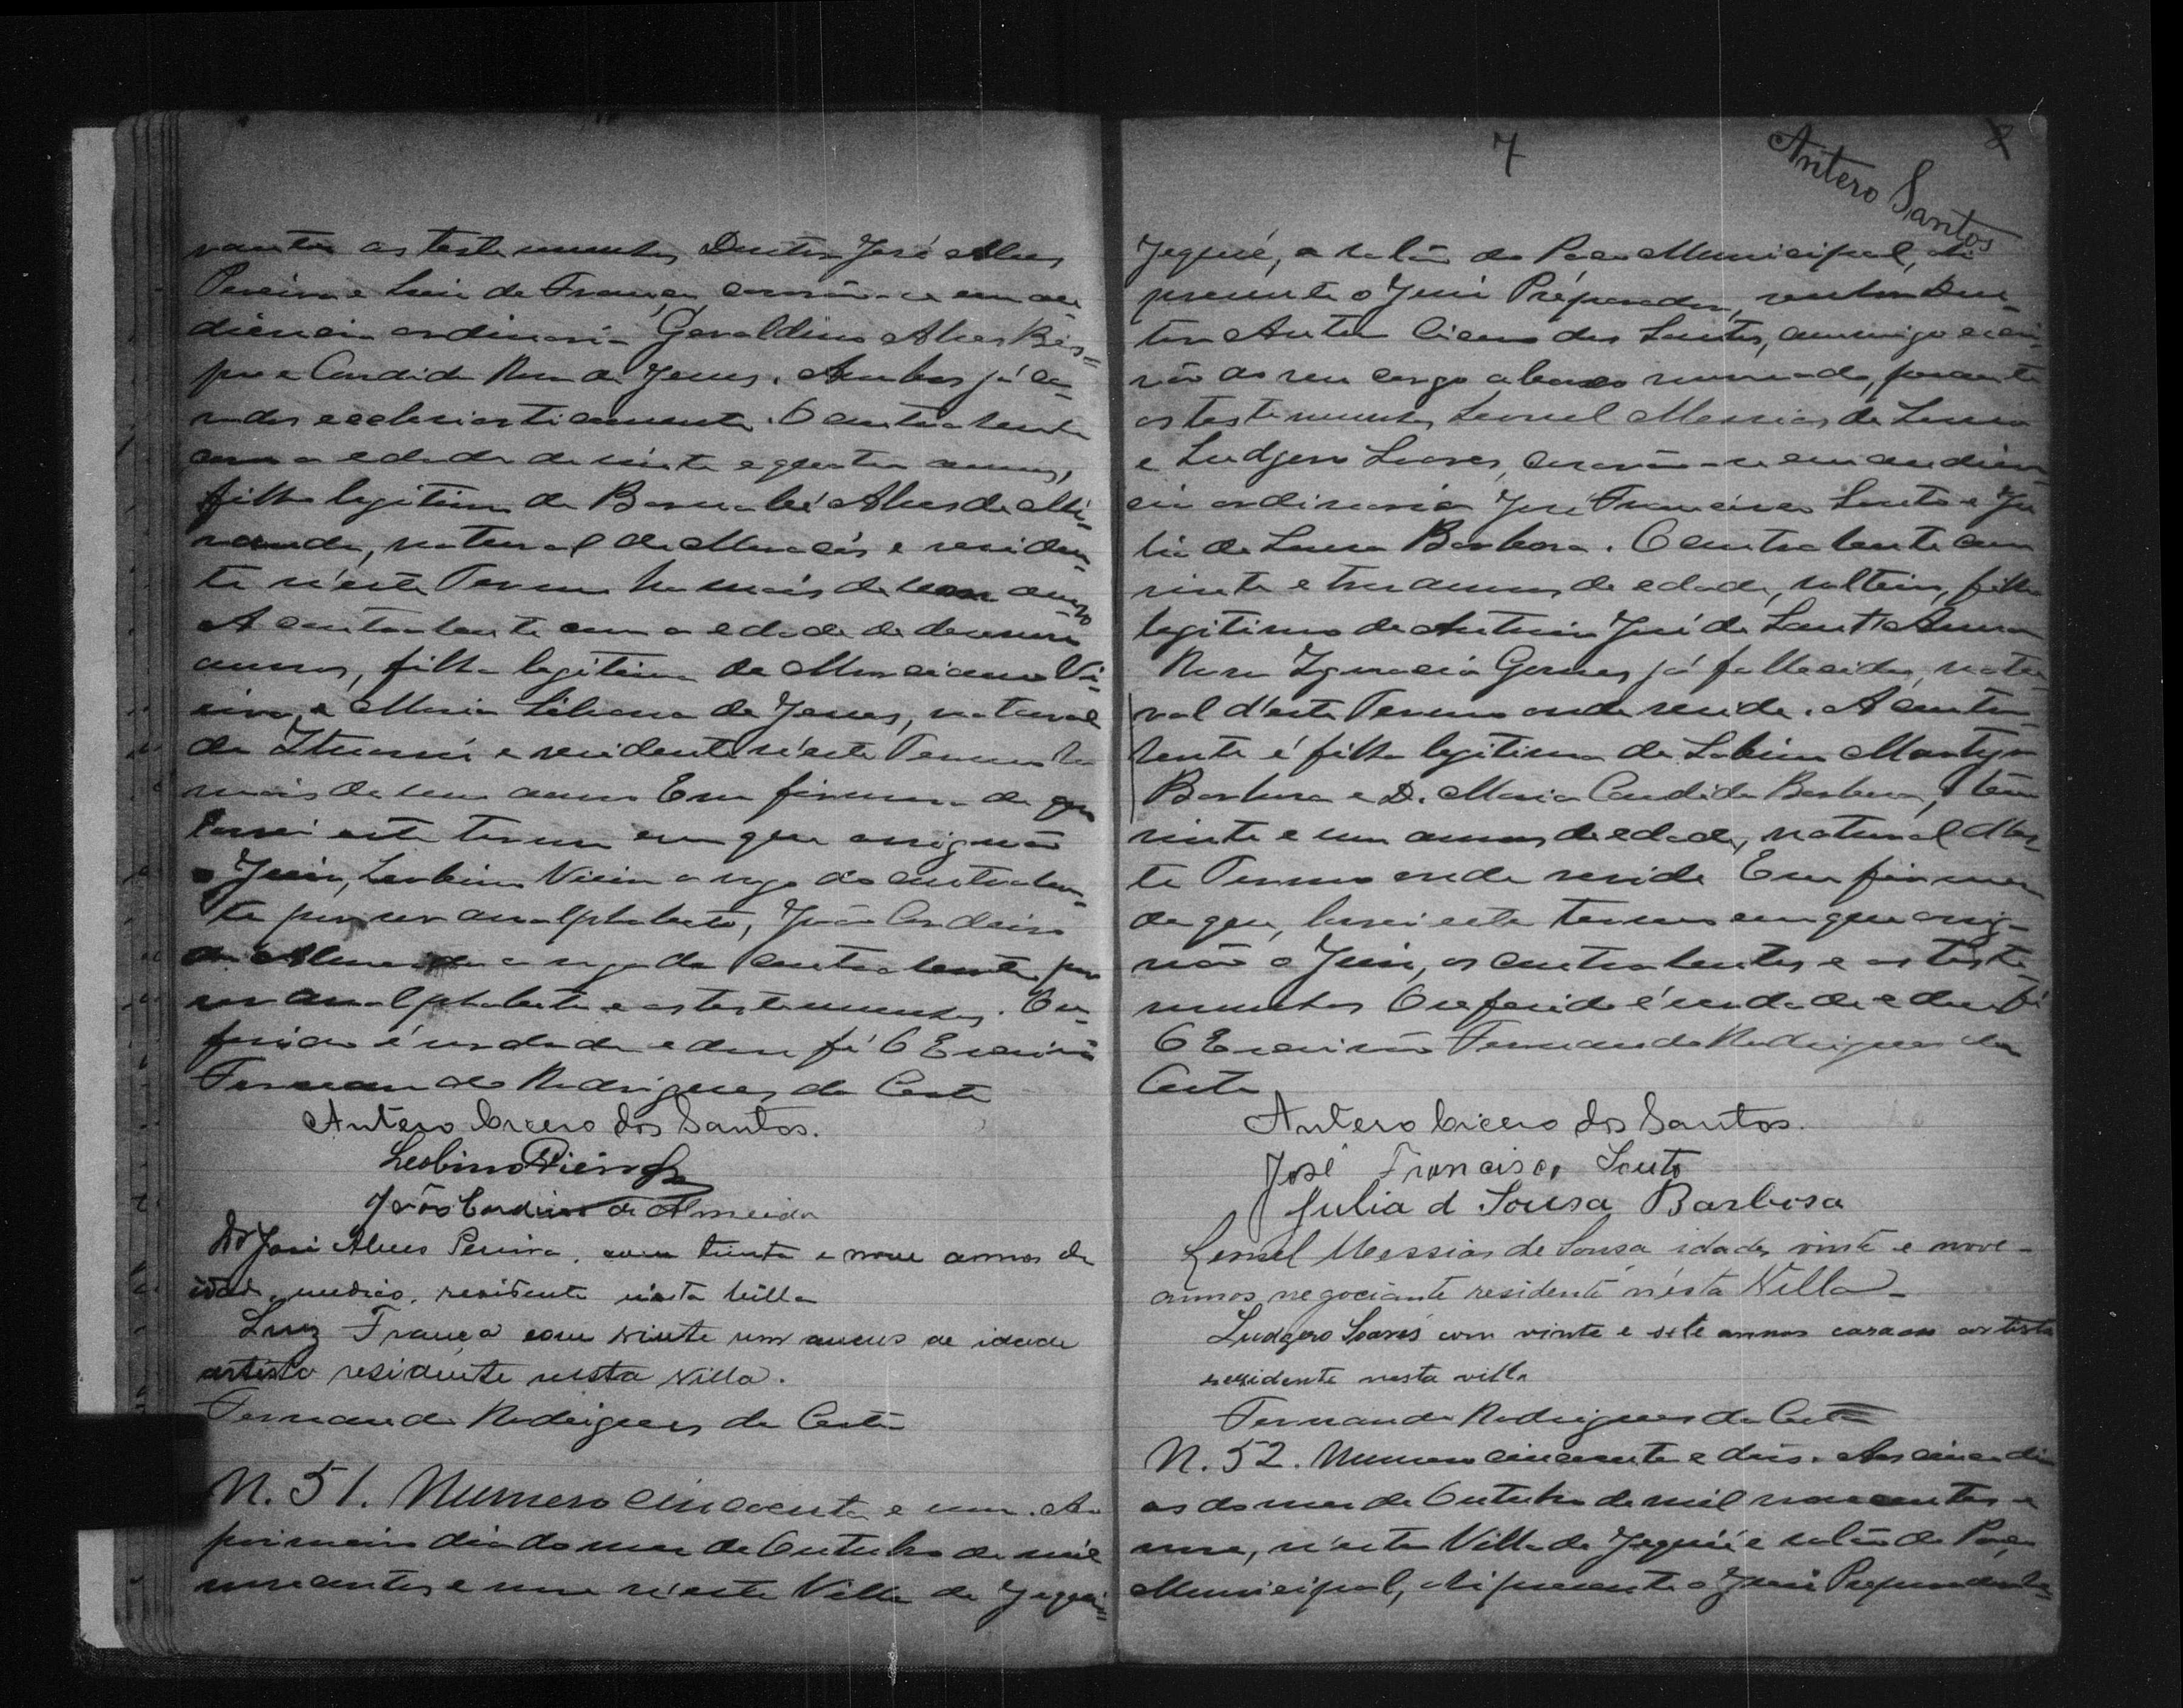 vante as testemunhas Doutor José Alves
Pereira e Luiz de França, casarão-se em au-
diencia ordinaria Geraldino Alves Bis-
po e Candida Rosa de Jesus. Ambos já ca-
sados ecclesiasticamente. O contratente
com a edade de vinte e quatro annos,
filho legitimo de Barnabé Alves de Mi-
randa, natural de Maracás e residen-
te n'este Termo ha mais de um anno
A contratente com a edade de desenove
annos, filha legitima de Marciano Vi-
eira e Maria Liliana de Jesus, natural
de e residente n'este Termo ha
mais de um anno Em firmesa do que
lavrei este termo em que assignão
o Juiz, Leobino Vieira a rogo do contraten-
te por ser analphabeto, João Cordeiro
de Almeida a rogo da contratente por
ser analphabeta e as testemunhas. O re-
ferido é verdade e dou fé O Escrivão
Fernando Rodrigues da Costa
Antero Cicero dos Santos.
Leobino Vieira
João Cordeiro de Almeida
Dr José Alves Pereira, com trinta e nove annos de
idade, medico, residente nesta villa
Luiz França com vinte um annos de idade
artista residente nesta Villa.
Fernando Rodrigues da Costa
N. 51. Numero cincoenta e um. Ao
primeiro dia do mez de Outubro de mil
novecentos e nove n'esta Villa de Jequié
7
Antero Santos
8
Jequié, a salão do Paço Municipal, ahi
presente o Juiz Preparador, senhor Dou-
tor Antero Cicero dos Santos, commigo escri-
vão do seu cargo abaixo nomeado, perante
as testemunhas Leonel Messias de Sousa
e Ludgero Soares, casarão-se em audien-
cia ordinaria José Francisco Souto e Ju-
lia de Sousa Barbosa. O contratente com
vinte e tres annos de edade, solteiro, filho
legitimo de Antonio José de Souto e
Rosa Ignacia Gomes já fallecida, natu-
ral d'este Termo onde reside. A contra-
tente é filha legitima de Sabino Martyr
Barbosa e D. Maria Candida Barbosa, tem
vinte e um annos de edade, natural des-
te Termo onde reside Em firmesa
do que, lavrei este termo em que assig-
não o Juiz, os contratentes e as teste-
munhas O referido é verdade e dou fé
O Escrivão Fernando Rodrigues da
Costa
Antero Cicero dos Santos.
José Francisco Souto
Julia d Sousa Barbosa
Leonel Messias de Sousa idade, vinte e nove-
annos, negociante residente n'esta Villa-
Ludgero Soares com vinte e sete annos casado artista
residente nesta villa
Fernando Rodrigues da Costa
N. 52. Numero cincoenta e dois. Aos cinco di-
as do mez de Outubro de mil novecentos e
nove, n'esta Villa de Jequié e salão do Paço
Municipal, ahi presente o Juiz Preparador